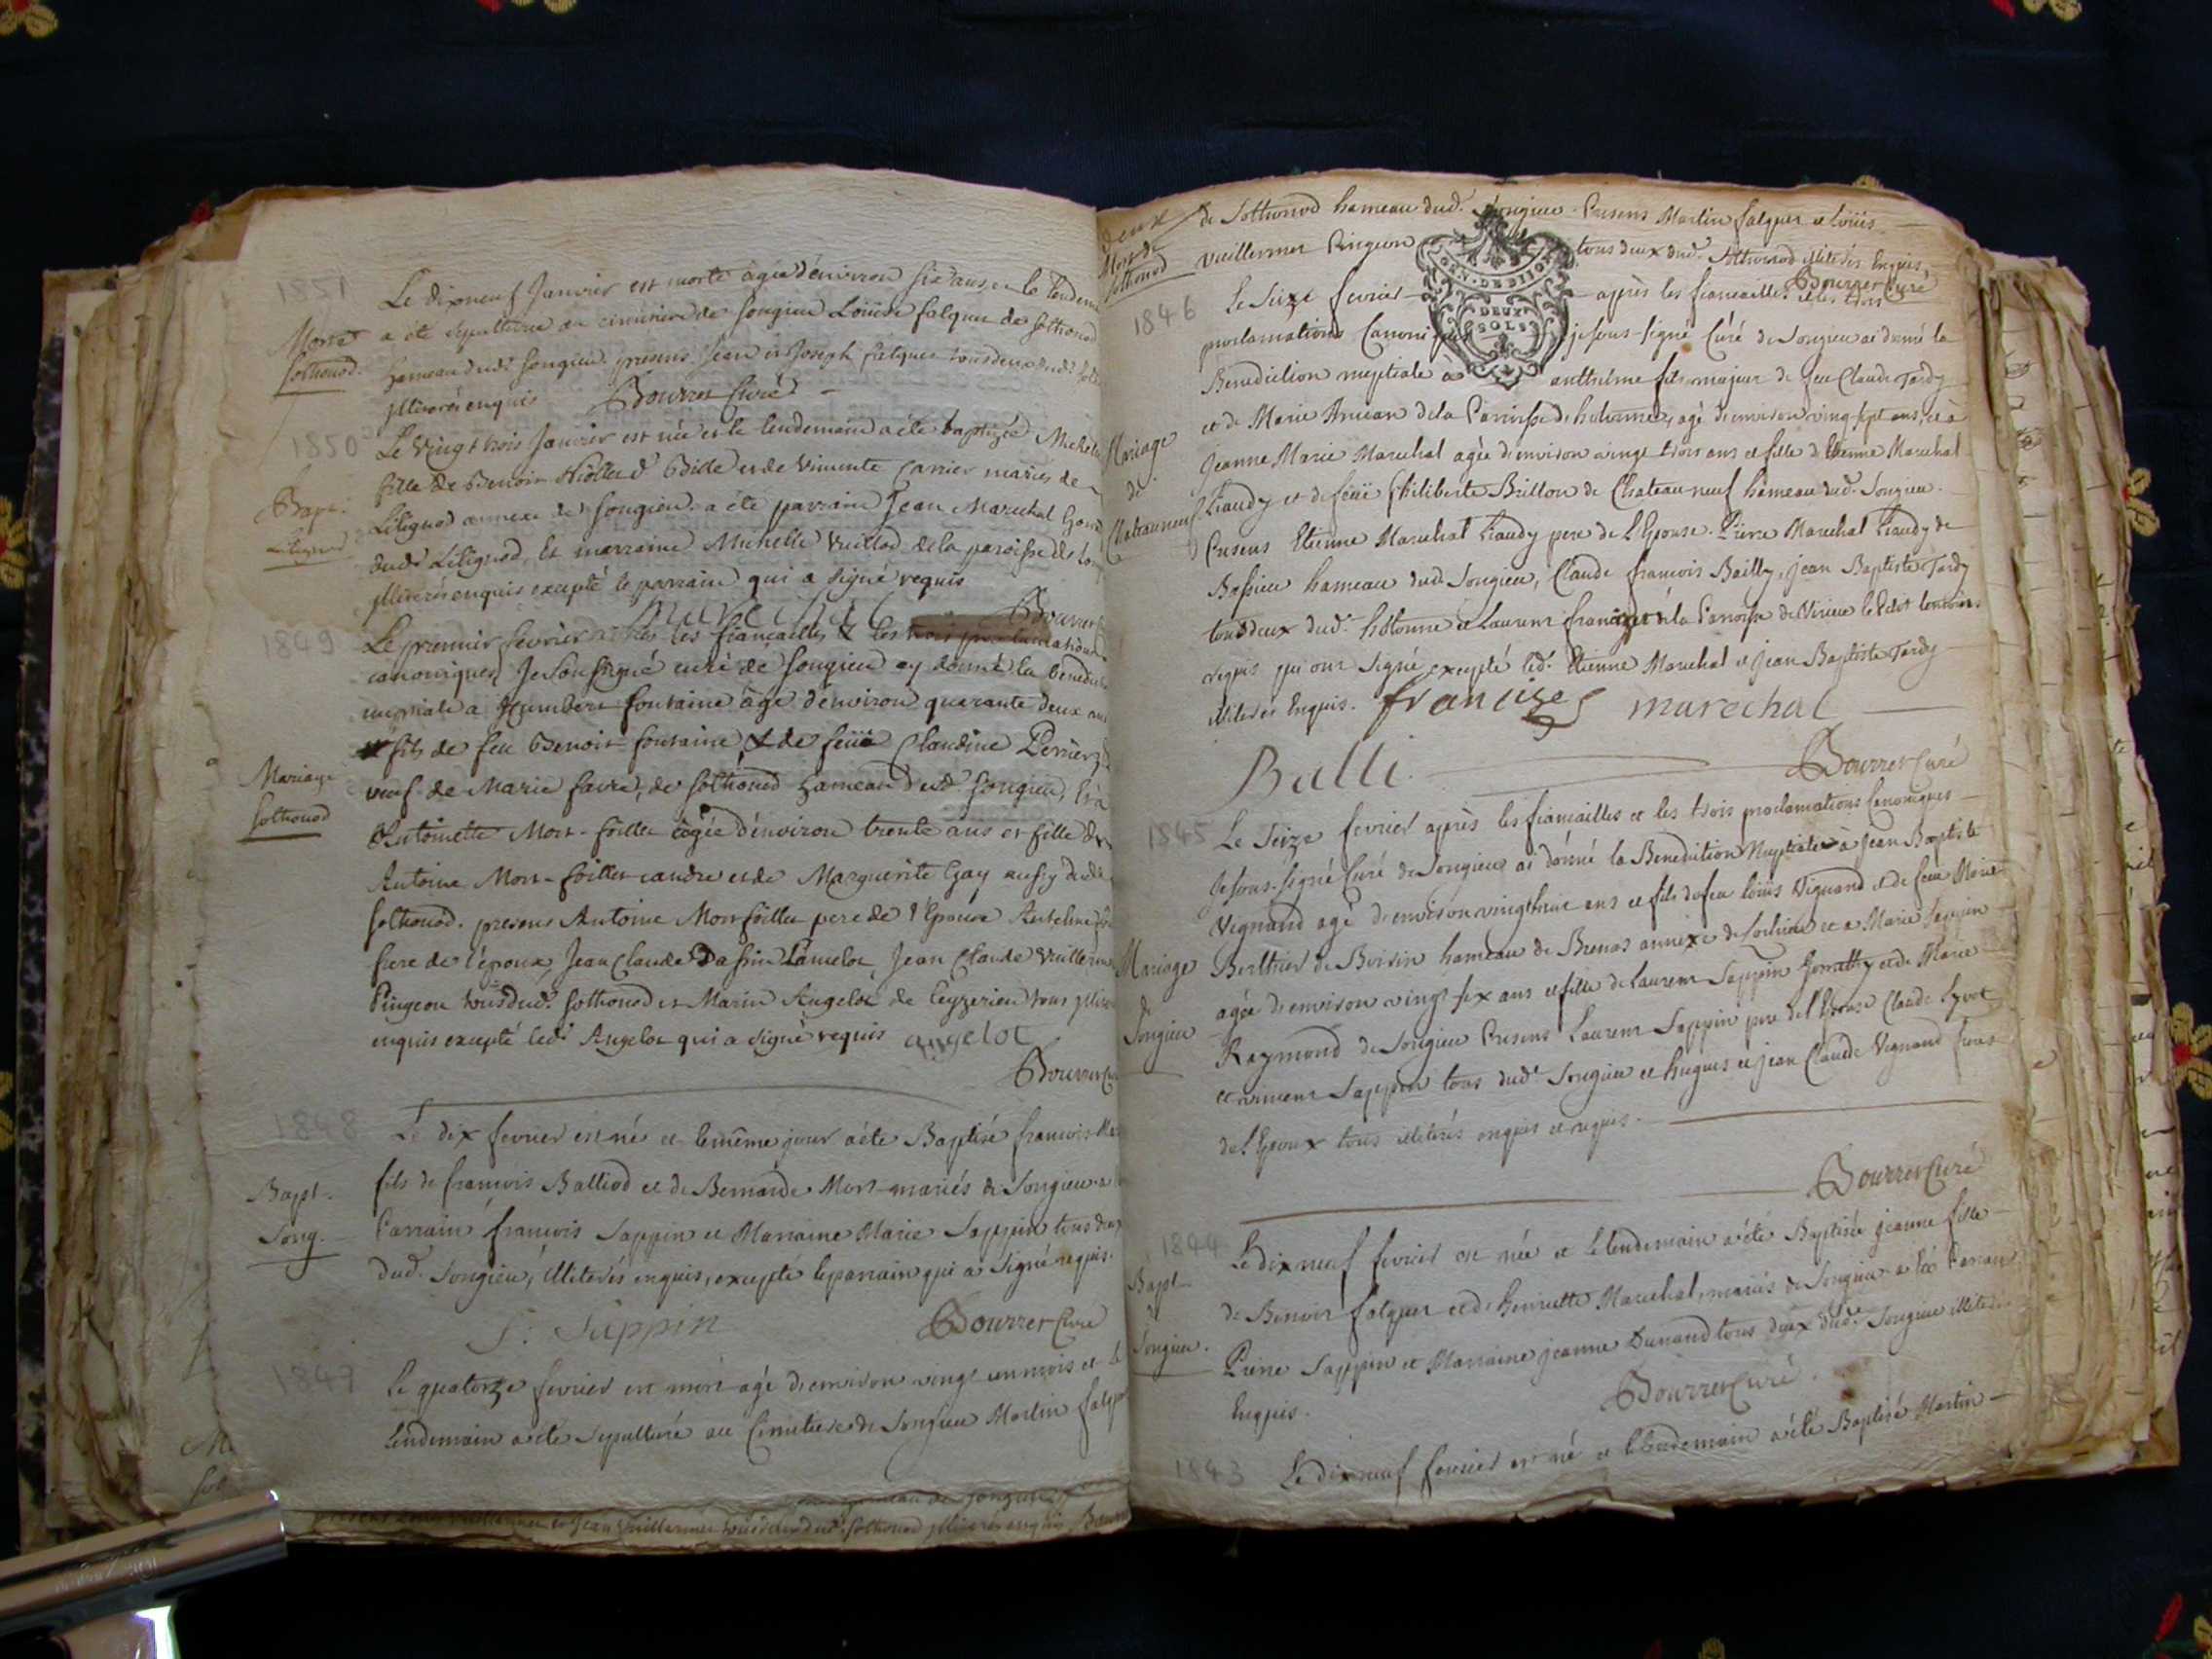 1851
Le dixneuf Janvier est morte agée d'environ six ans, et le lendem
Morte a été sepulturée au cimetiere de songieu Loüise falquet de sothonod
sothonod. hameau dud. songieu. presens Jean et Joseph falquet tous deux dud.
illiterés enquis Bourret Curé
1850
Le vingt trois Janvier est née et le lendemain a été baptizée Michelle
fille de Benoit de vincente Carrier mariés de
Bapt.
Litignod
Litignod annexe de songieu. a été parrain Jean Marechal
dud. Litignod, et marraine Michelle Vuillod de la paroisse de
illiterés enquis excepté le parrain qui a signé requis
marechal Bourret
1849
Le premier fevrier après les fiancailles & les trois proclamations
canoniques, Je soussigné curé de songieu ay donné la benedict
nuptiale a Humbert fontaine agé d'environ quarante deux ans
fils de feu Benoit fontaine & de feüe Claudine Perrier,
Mariage
sothonod
veuf de Marie favre, de sothonod hameau dud. songieu, Et à
Antoinette Mort-foillet agée d'environ trente ans et fille d'
Antoine Mort-foillet candre et de Marguerite Gay aussy dud.
sothonod. presens Antoine Mort foillet pere de l'Epouse Anthelme
frere de l'époux, Jean Claude Passin Lancelot, Jean Claude Vuillerme
Pingeon tous dud. sothonod et Marin Angelot de Leyzerieu tous illite
enquis excepté led. Angelot qui a signé requis angelot
Bourret Cu
1848
Le dix fevrier est né et le même jour a été Baptisé francois
Bapt.
Song.
fils de francois Balliod et de Bernarde Mort mariés de Songieu a
Parrain francois Sappin et Marraine Marie Sappin tous deux
dud. Songieu, illiterés enquis, excepté le parrain qui a signé requis.
f. Sappin Bourret Curé
1847
Le quatorze fevrier est mort agé d'environ vingt un mois et le
lendemain a été sepulturé au Cimetiere de Songieu Martin falque
hameau de songieu
Jean Vuillermet tous deux dud. sothonod illiterés enquis Bourret
deux
Mort de
sothonod
de Sothonod hameau dud. Songieu. Presens Martin falquet et Loüis
Vuillermet Pingeon tous deux dud. Sothonod illiterés Enquis,
Bourret Curé
GEN. DE DIJON
DEUX
SOLS
1846
Le Seize fevrier après les fiancailles et les trois
proclamations Canoniques je sous-signé Curé de Songieu ai donné la
Benediction nuptiale à anthelme fils majeur de feu Claude Tardy
et de Marie Ancian de la Parroisse d'hotonne, agé d'environ vingt sept ans, et à
Mariage
de
Chateauneuf
Jeanne Marie Marechal agée d'environ vingt trois ans et fille d'Etienne Marechal
Liaudy et de feüe Philiberte Brillon de Chateauneuf hameau dud. Songieu.
Presens Etienne Marechal Liaudy pere de l'Epouse. Pierre Marechal Liaudy de
Bassieu hameau dud. Songieu, Claude francois Bailly, Jean Baptiste Tardy
tous deux dud. hotonne et Laurent francizet de la Parroisse de Virieu le Petit temoins
requis qui ont signé excepté led. Etienne Marechal et Jean Baptiste Tardy
illiterés Enquis. francizet marechal
Balli Bourret Curé
1845
Le Seize fevrier après les fiancailles et les trois proclamations Canoniques
Je sous-signé Curé de Songieu ai donné la Benediction Nuptiale à Jean Baptiste
Vignand agé d'environ vingthuit ans et fils de feu Loüis Vignand et de feüe Marie
Mariage
de
Songieu
Berthier de Boisin hameau de Brenas annexe de Lochieu et a Marie Sappin
agée d'environ vingt six ans et fille de Laurent Sappin Jomethy et de Marie
Raymond de Songieu Presens Laurent Sappin pere de l'Epouse Claude Lyvet
et vincent Sappin tous dud. Songieu et hugues et jean Claude Vignand freres
de l'Epoux tous illiterés enquis et requis.
Bourret Curé
1844
Le dixneuf fevrier est née et le lendemain a été Baptisée jeanne fille
Bapt.
de
Songieu.
de Benoit falquet et de henriette Marechal, mariés de Songieu a été Parrain
Pierre Sappin et Marraine jeanne Dunand tous deux dud. Songieu illiterés
Enquis. Bourret Curé.
1843
Le dixneuf fevrier est né et le lendemain a été Baptisé Martin